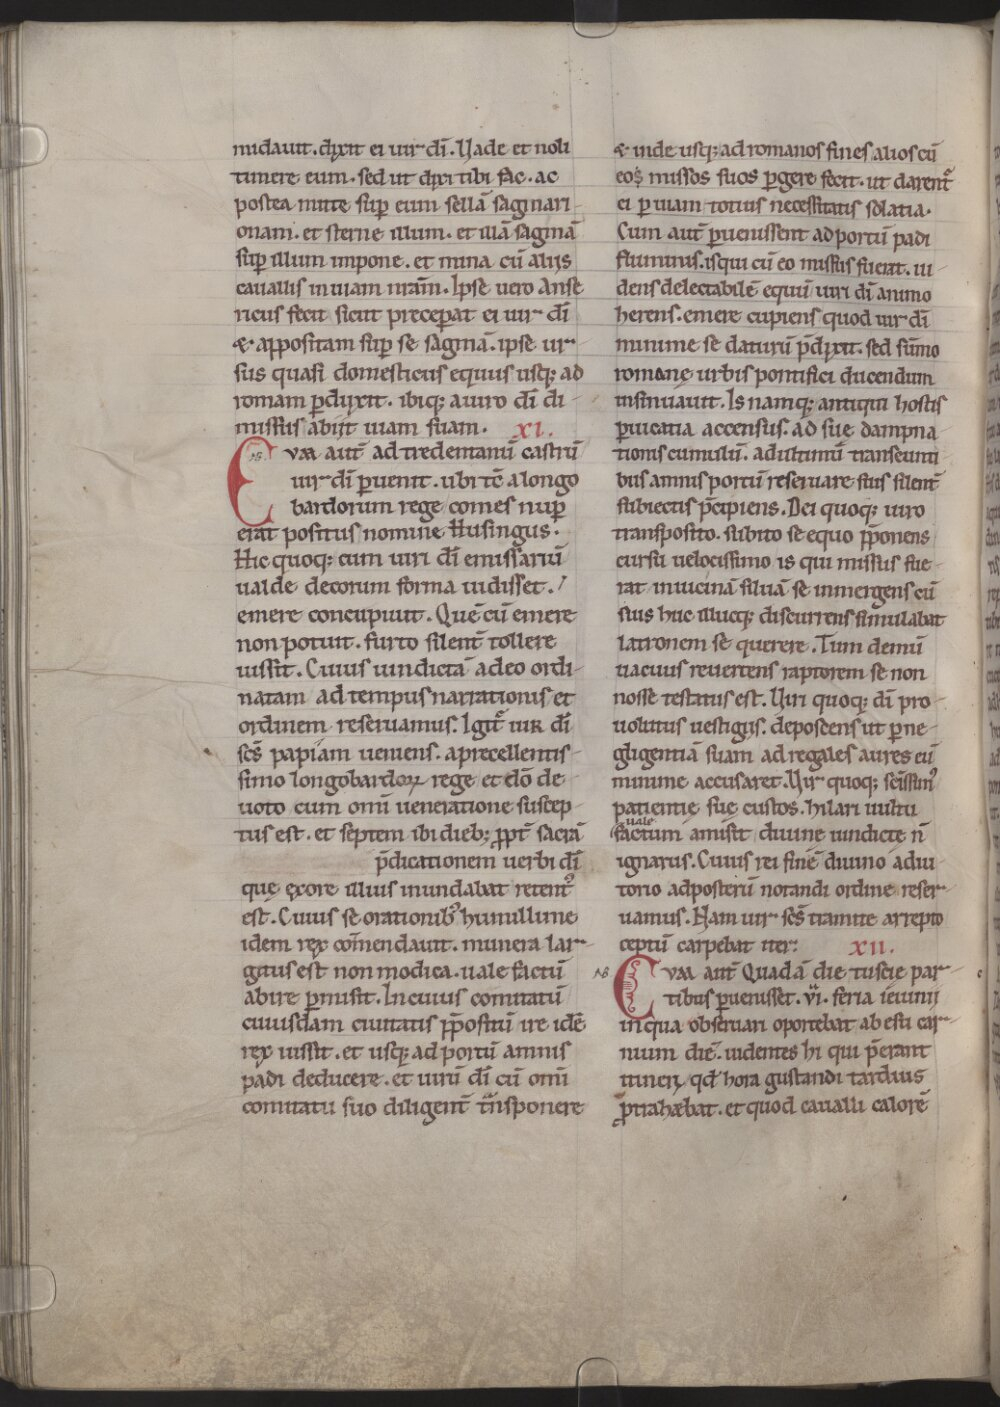 nudauit. dixit ei uir dī. Uade et noli
timere eum. sed ut dixi tibi fac. ac
postea mitte sup eum sellā saginari-
onam. et sterne illum. et illā saginā
sup illum impone. et mina cū alijs
cauallis in uiam nrām. Ipse uero Anse
ricus fecit sicut preceperat ei uir dī
& appositam sup se saginā. ipse ur-
sus quasi domesticus equus usq; ad
romam pdixit. ibiq; a uiro dī di-
missus abijt uiam suam. XI.
Cvm aut̄ ad tredentanū castrū
uir dī puenit. ubi tc̄ a longo
bardorum rege comes nup
erat positus nomine Husingus.
Hic quoq; cum uiri dī emissariū
ualde decorum forma uidisset.
emere concupiuit. Quē cū emere
non potuit. furto silent̄ tollere
iussit. Cuius uindictā a deo ordi-
natam ad tempus narrationis et
ordinem reseruamus. Igit̄ uir dī
scs̄ papiam ueniens. a precellentis-
simo longobardoꝝ rege et clo᷒ de-
uoto cum omī ueneratione suscep-
tus est. et septem ibi dieb; ppt̄ sacrā
p̄dicationem uerbi dī
que ex ore illius inundabat retent᷒
est. Cuius se orationib᷒ humillime
idem rex cōmendauit. munera lar-
gitus est non modica. uale factū
abire pmisit. In cuius comitatū
cuiusdam ciuitatis ppositū ire idē
rex iussit. et usq; ad portū amnis
padi deducere. et uirū dī cū omī
comitatu suo diligent̄ tnsponere
& inde usq; ad romanos fines alios cū
eos missos suos pgere fecit. ut darent̄
ei p uiam totius necessitatis solatia.
Cum aut̄ puenissent ad portū padi
fluminis. is qui cū eo missus fuerat. ui-
dens delectabilē equū uiri dī animo
herens. emere cupiens quod uir dī
minime se daturū p̄dixit. sed sūmo
romane urbis pontifici ducendum
insinuauit. Is namq; antiqui hostis
puicatia accensus. ad sue dampna-
tionis cumulū. ad ultimū transeunti-
bus amnis portū reseruare suis silent̄
subiectis p̄cipiens. Dei quoq; uiro
transposito. subito se equo pponens
cursu uelocissimo is qui missus fue-
rat in uicinā siluā se inmergens cū
suis huc illucq; discurrens simulabat
latronem se querere. Tum demū
uacuus reuertens raptorem se non
nosse testatus est. Uiri quoq; dī pro-
uolutus uestigijs. deposcens ut p ne-
gligentiā suam ad regales aures eū
minime accusaret. Uir quoq; sc̄issim᷒
patientie sue custos. hilari uultu
uale
factum amisit diuine uindicte n̄
ignarus. Cuius rei finē diuino adiu-
torio ad posterū notandi ordine reser-
uamus. Nam uir scs̄ tramite arrepto
ceptū carpebat iter: XII.
Cvm aut̄ Quadā die tuscie par-
tibus peruenisset. VI. feria ieiunij
in qua obseruari oportebat ab esu car-
nium diē. uidentes hi qui p̄erant
itineri qd̄ hora gustandi tardius
ptrahebat. et quod caualli calorē